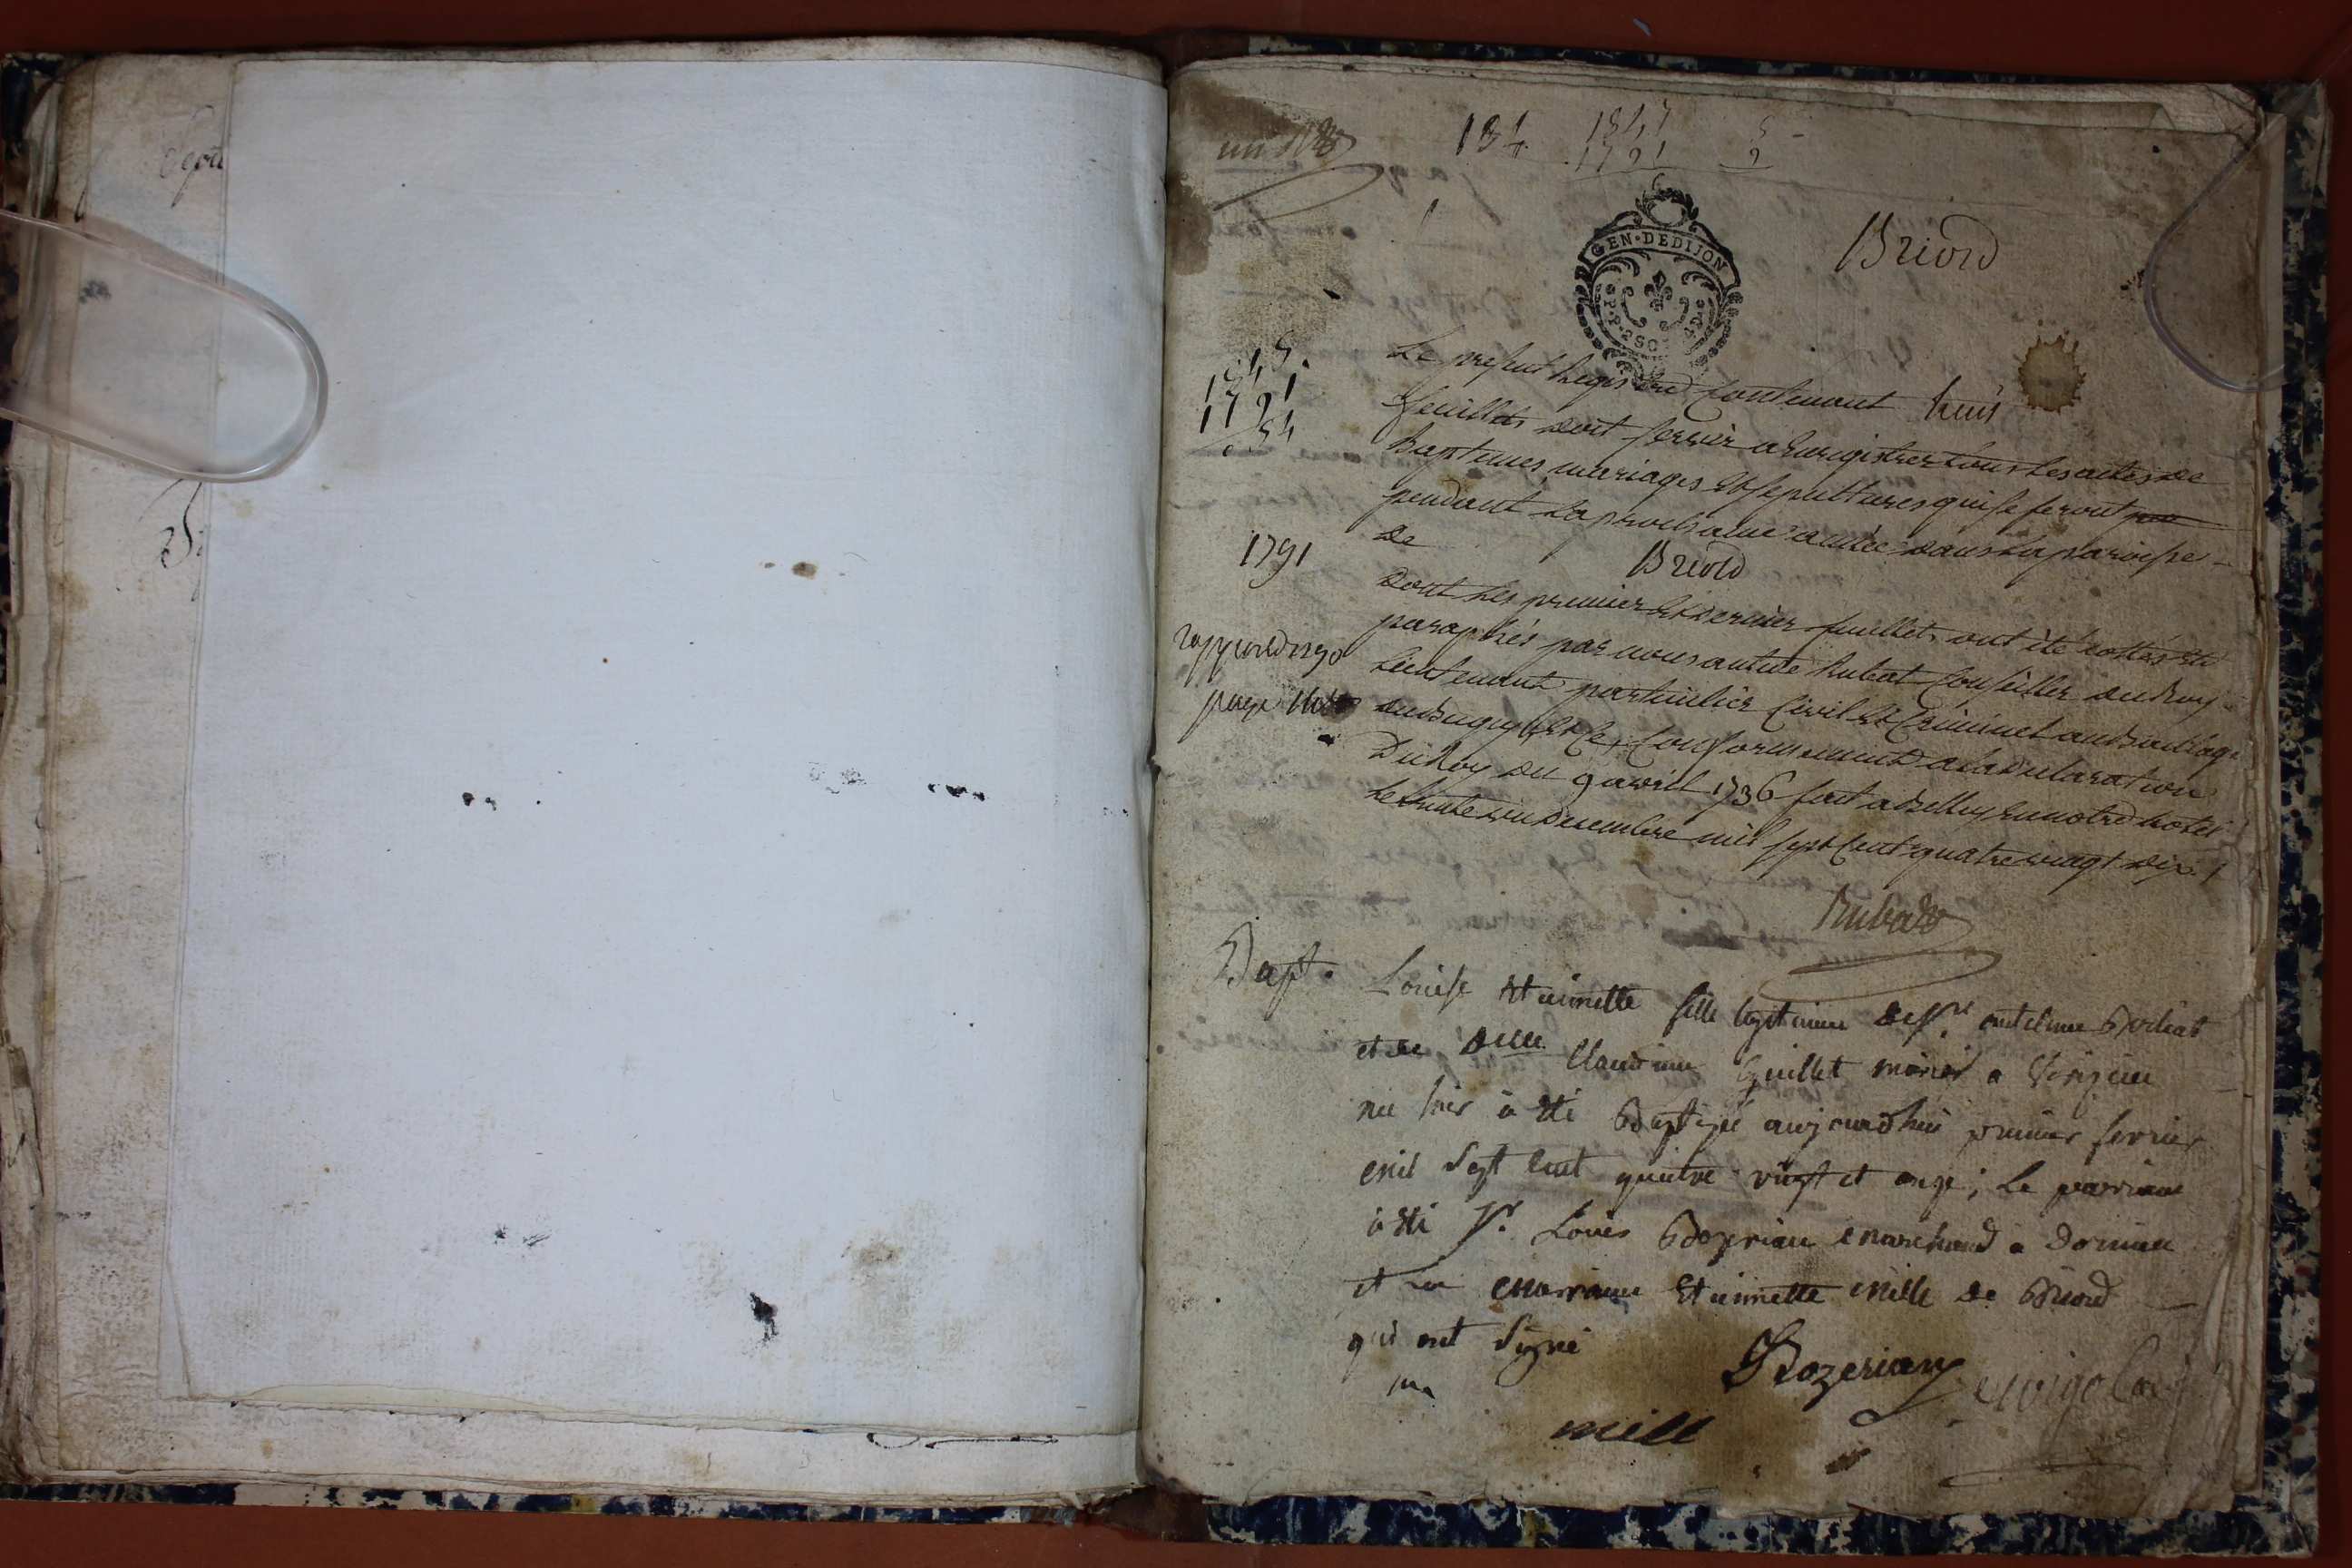 184 1841 5
1791 2
GEN·DEDIJON
Briord
Le present Registre Contenant huit
feuillets doit servir a Enregistrer tous Les actes de
Baptemes mariages et sepultures qui se feront
pendant La prochaine année dans La paroisse
de Briord
1791
dont Les premier et dernier feuillets ont été cottés et
paraphés par nous antide Rubat Conseiller du Roy
Lieutenant particulier Civil et Criminel au Bailliage
du Bugey et ce Conformement a la declaration
du Roy du 9 avril 1736 fait a Belley en notre hotel
Le trente un decembre mil sept Cent quatre vingt dix
Rubat
Bapt. Louise Etiennette fille legitime de Sr. antelme
et de Dlle Claudine Guillet mariés a
née hier à été Baptisée aujourdhui premier fevrier
mil Sept Cent quatre vingt et onze; Le parrain
à été Sr. Louis Bozerian marchand a
et La marraine Etiennette mille de Briord
qui ont Signé
Bozerian
mill